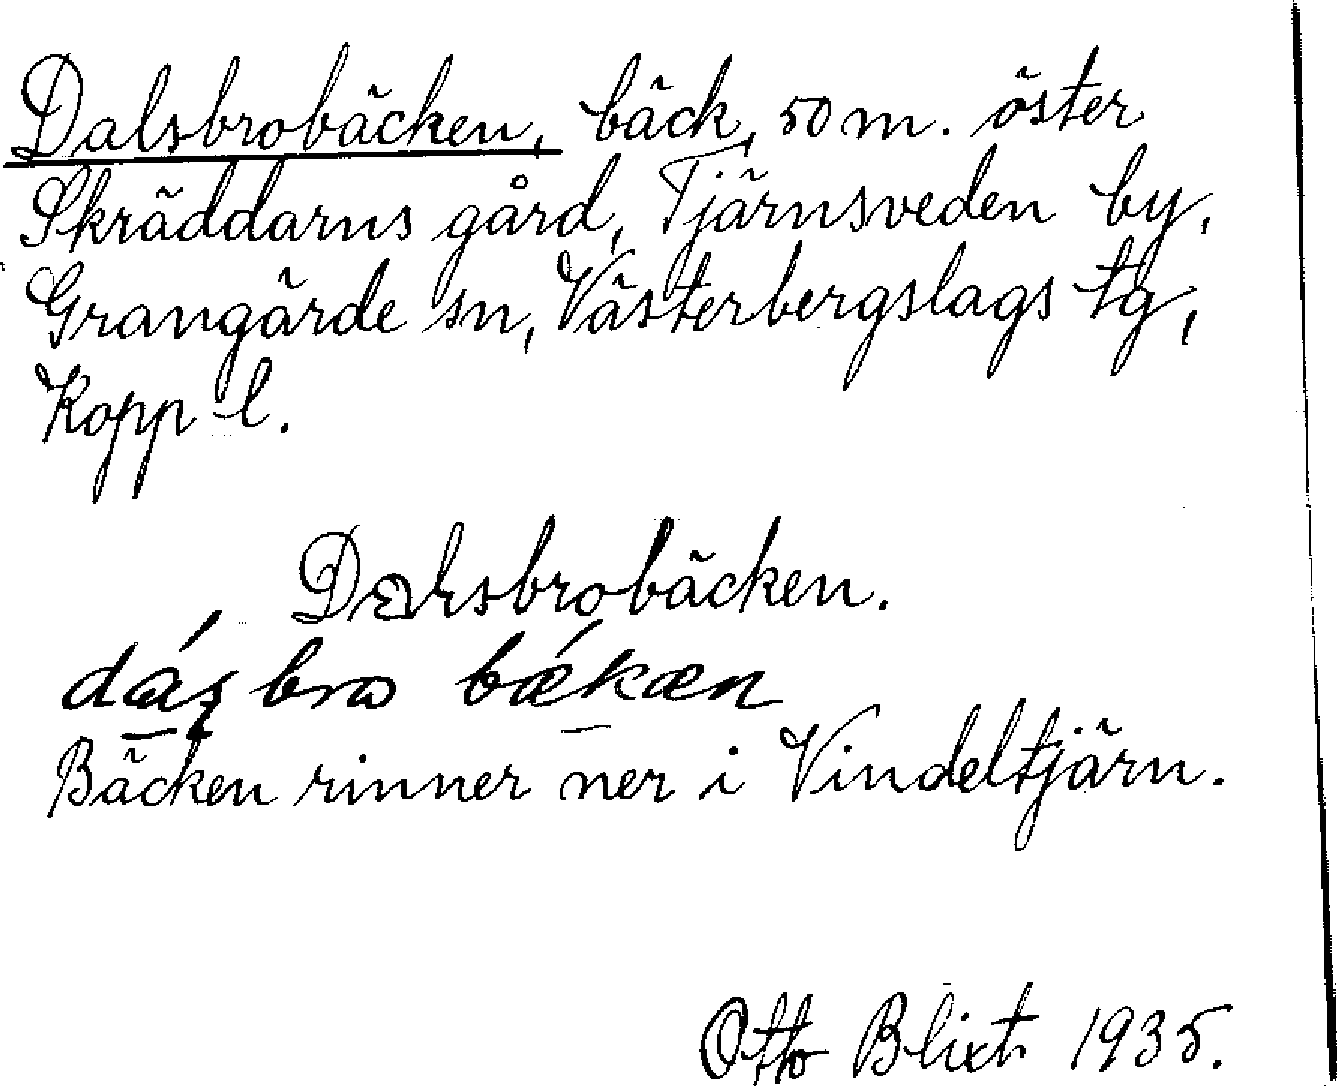 Dalsbrobäcken, bäck, 50 m. öster
Skräddarns gård, Tjärnsveden by,
Grangärde sn, Västerbergslags tg,
Kopp-l.
Dalsbrobäcken.
bro bǽkæn
Bäcken rinner ner i Vindeltjärn.
Otto Blixt 1935.